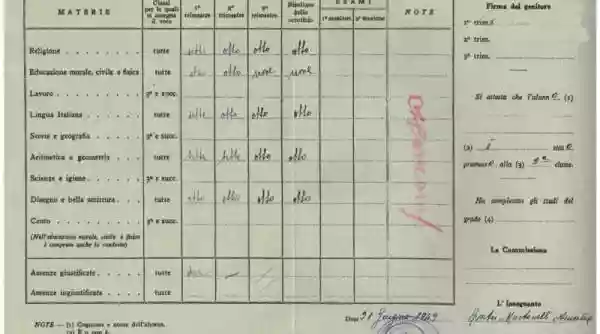 MATERIE Classi per le quali si assegna il voto 1° trimestre 2° trimestre 3° trimestre Risultato dello scrutinio ESAMI 1ª sessione 2ª sessione NOTE
Religione tutte sette otto otto otto
Educazione morale, civile e fisica tutte otto
Lavoro 3ª e succ.
Lingua Italiana tutte sette otto otto otto
Storia e geografia 3ª e succ.
Aritmetica e geometria tutte sette sette otto otto
Scienze e igiene 3ª e succ.
Disegno e bella scrittura tutte otto otto otto otto
Canto 3ª e succ.
(Nell'educazione morale, civile e fisica è compresa anche la condotta)
Assenze giustificate tutte
Assenze ingiustificate tutte
NOTE — (1) Cognome e nome dell'alunno.
(2) È o non è.
Firma del genitore
1° trim.
2° trim.
3° trim.
Si attesta che l'alunn (1)
(2) è stat
promoss alla (3) classe.
Ha compiuto gli studi del
grado (4)
La Commissione
Data 21 Giugno 1949
L'Insegnante